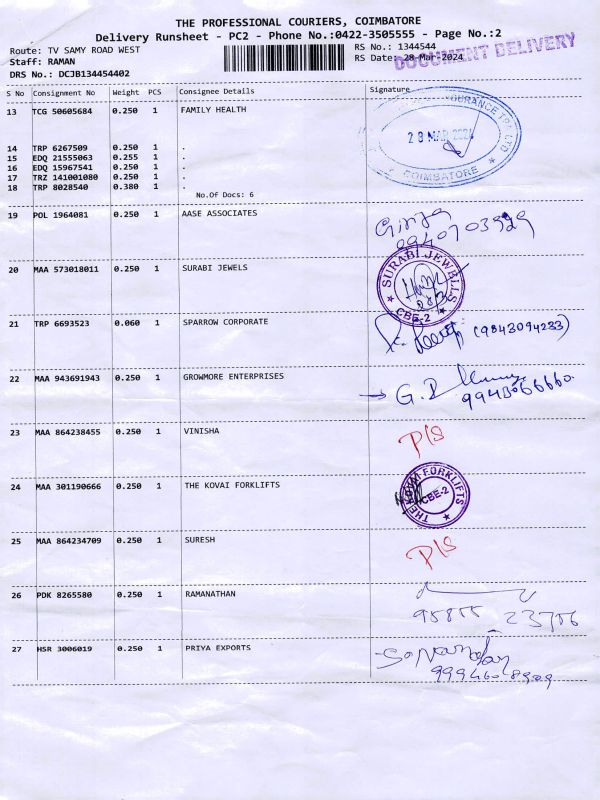 THE PROFESSIONAL COURIERS, COIMBATORE
Delivery Runsheet - PC2 - Phone No.:0422-3505555 - Page No.:2
Route: TV SAMY ROAD WEST RS No.: 1344544
Staff: RAMAN RS Date: 28-Mar-2024
DOCUMENT DELIVERY
DRS No.: DCJB134454402
S No Consignment No Weight PCS Consignee Details Signature
13 TCG 50605684 0.250 1 FAMILY HEALTH
28 MAR 2024
COIMBATORE
14 TRP 6267509 0.250 1 .
15 EDQ 21555063 0.255 1 .
16 EDQ 15967541 0.250 1 .
17 TRZ 141001080 0.250 1 .
18 TRP 8028540 0.380 1 .
No.Of Docs: 6
19 POL 1964081 0.250 1 AASE ASSOCIATES
Girija
20 MAA 573018011 0.250 1 SURABI JEWELS
SURABI JEWELLS
CBE-2
21 TRP 6693523 0.060 1 SPARROW CORPORATE
(9843094233)
22 MAA 943691943 0.250 1 GROWMORE ENTERPRISES
23 MAA 864238455 0.250 1 VINISHA
P/S
24 MAA 301190666 0.250 1 THE KOVAI FORKLIFTS
THE KOVAI FORKLIFTS
CBE-2
25 MAA 864234709 0.250 1 SURESH
P/S
26 PDK 8265580 0.250 1 RAMANATHAN
27 HSR 3006019 0.250 1 PRIYA EXPORTS